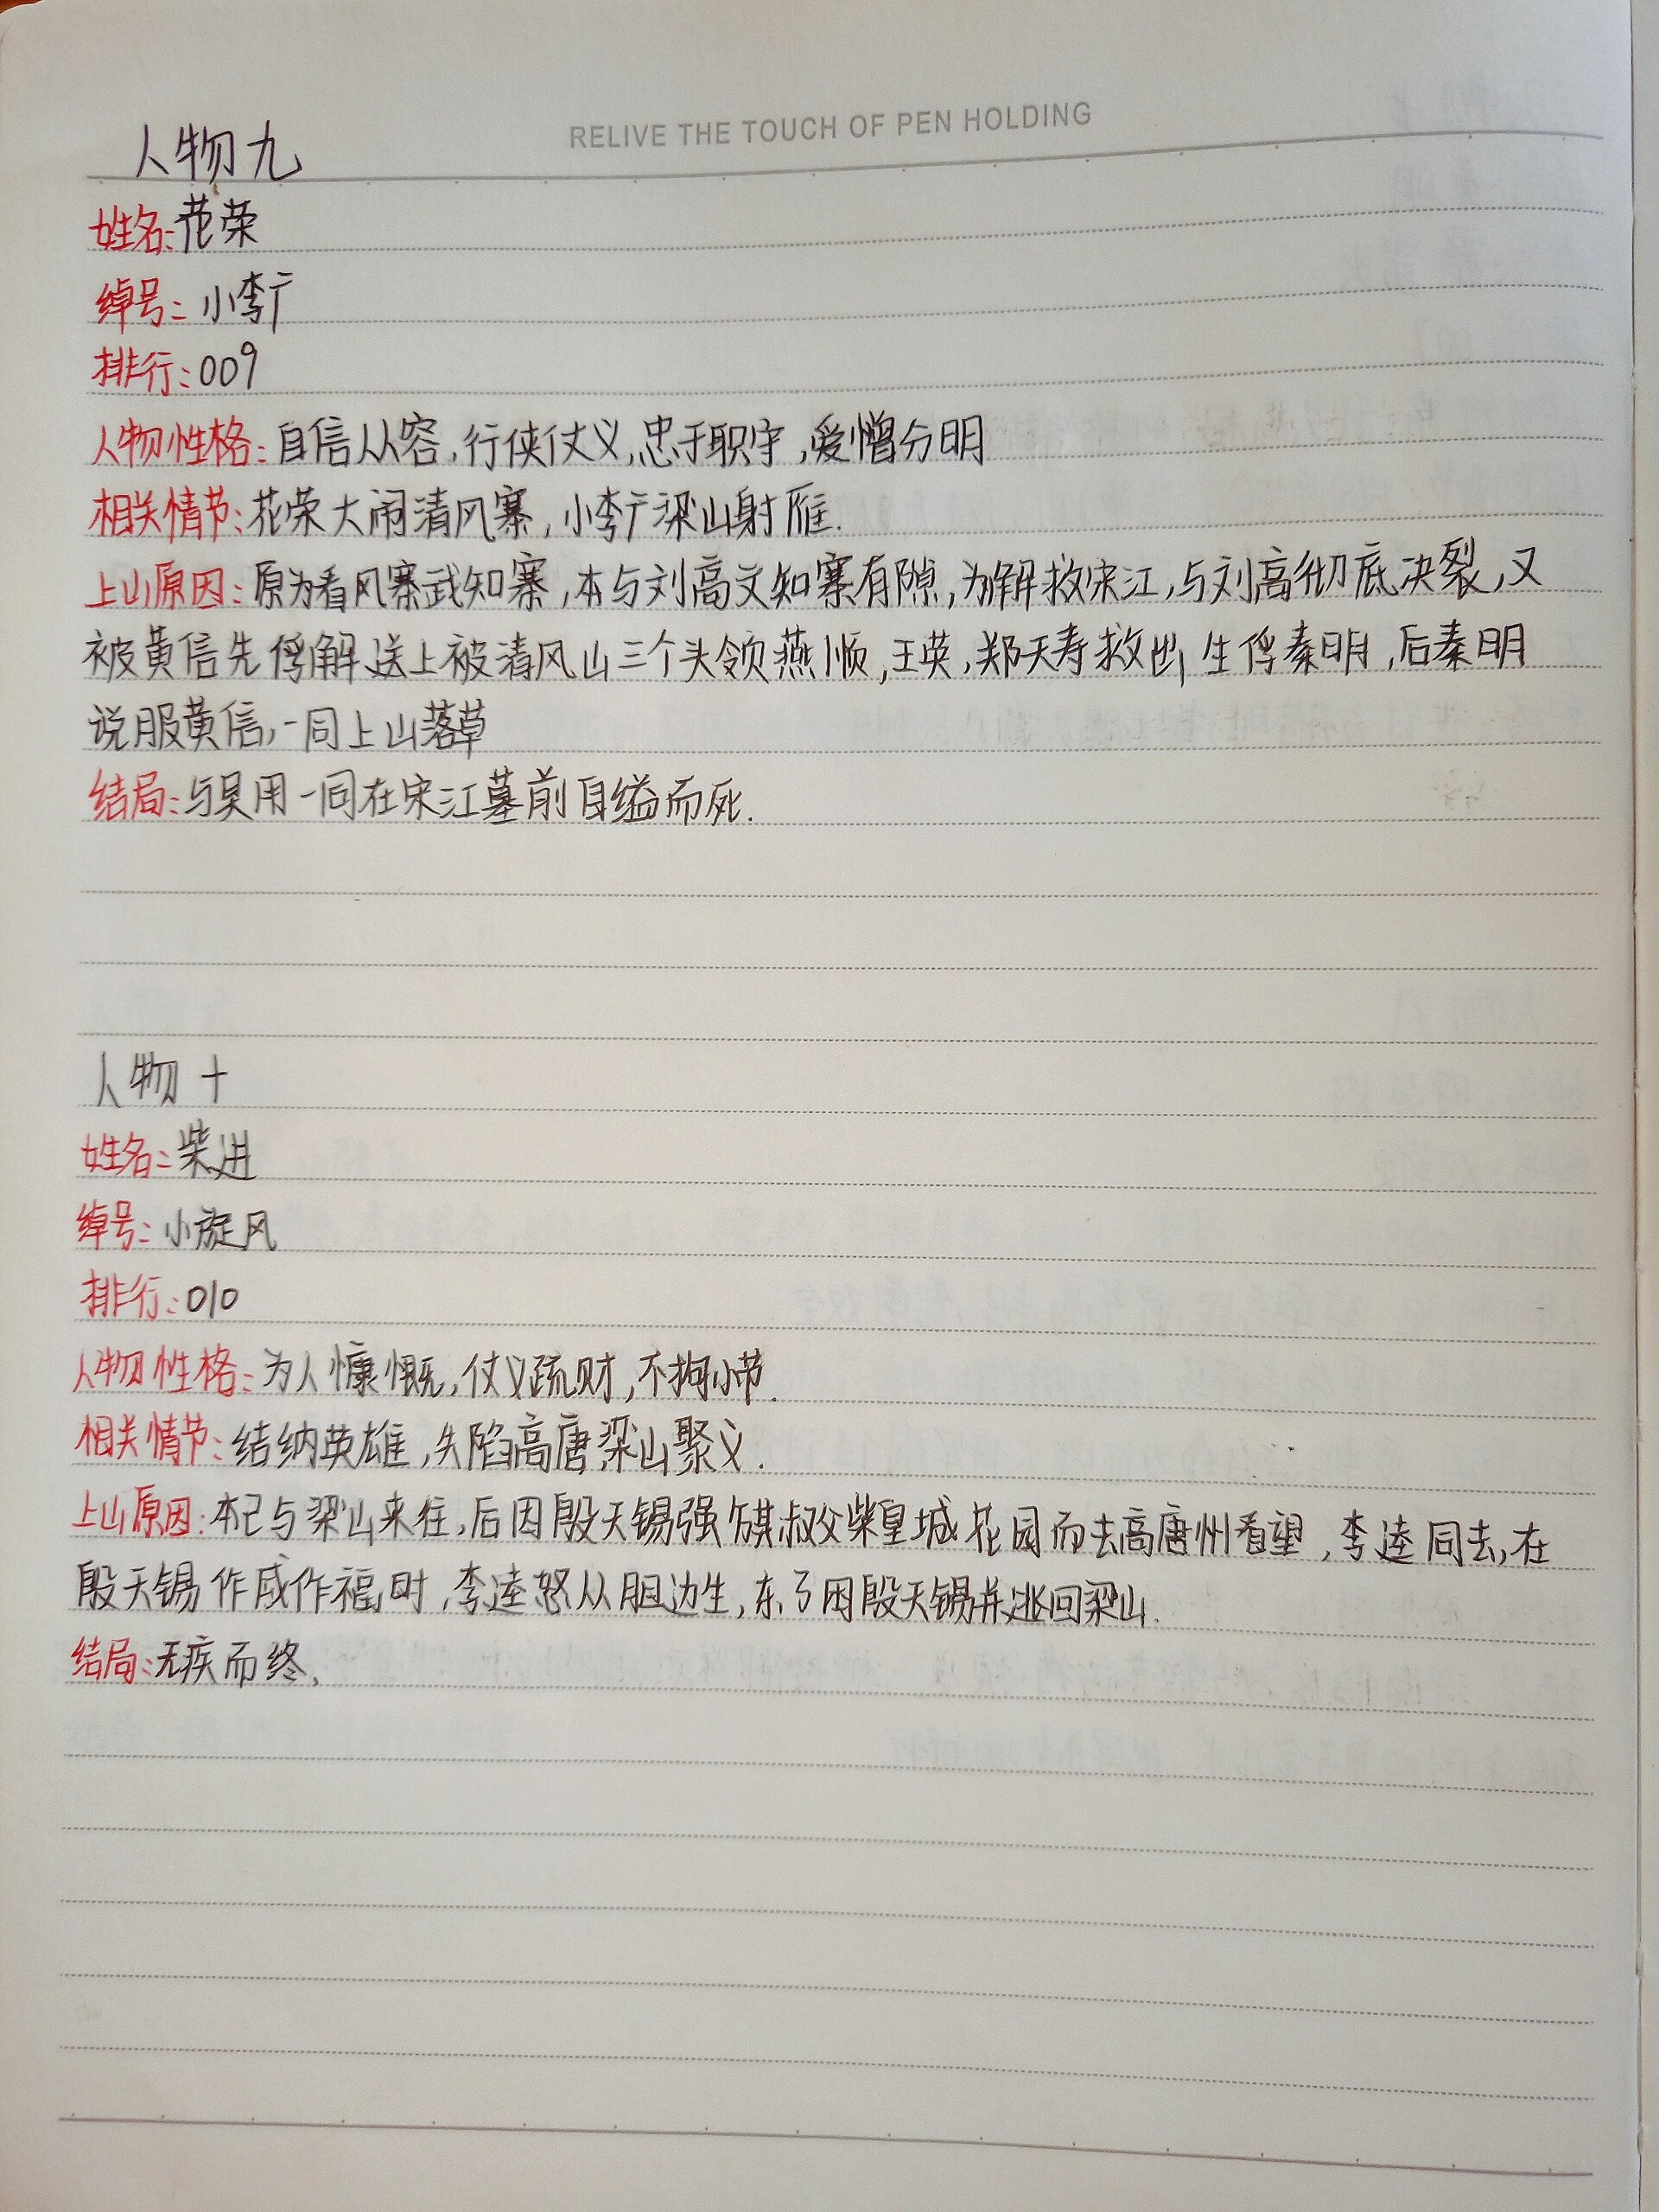 RELIVE THE TOUCH OF PEN HOLDING
人物九
姓名:花荣
绰号:小李广
排行:009
人物性格:自信从容,行侠仗义,忠于职守,爱憎分明
相关情节:花荣大闹清风寨,小李广梁山射雁.
上山原因:原为看风寨武知寨,本与刘高文知寨有隙,为解救宋江,与刘高彻底决裂,又
被黄信先俘解送上被清风山三个头领燕顺,王英,郑天寿救出,生俘秦明,后秦明
说服黄信,一同上山落草
结局:与吴用一同在宋江墓前自缢而死.
人物十
姓名:柴进
绰号:小旋风
排行:010
人物性格:为人慷慨,仗义疏财,不拘小节.
相关情节:结纳英雄,失陷高唐,梁山聚义.
上山原因:本已与梁山来往,后因殷天锡强其叔父柴皇城花园而去高唐州看望,李逵同去,在
殷天锡作威作福时,李逵怒从胆边生,殷天锡并逃回梁山.
结局:无疾而终,